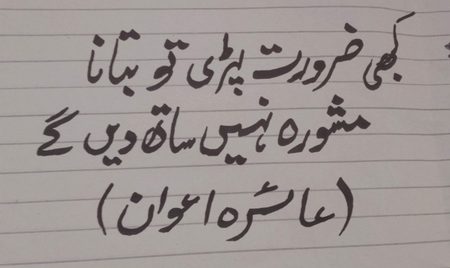 کبھی ضرورت پڑی تو بتانا
مشورہ نہیں ساتھ دیں گے
(عائشہ اعوان)